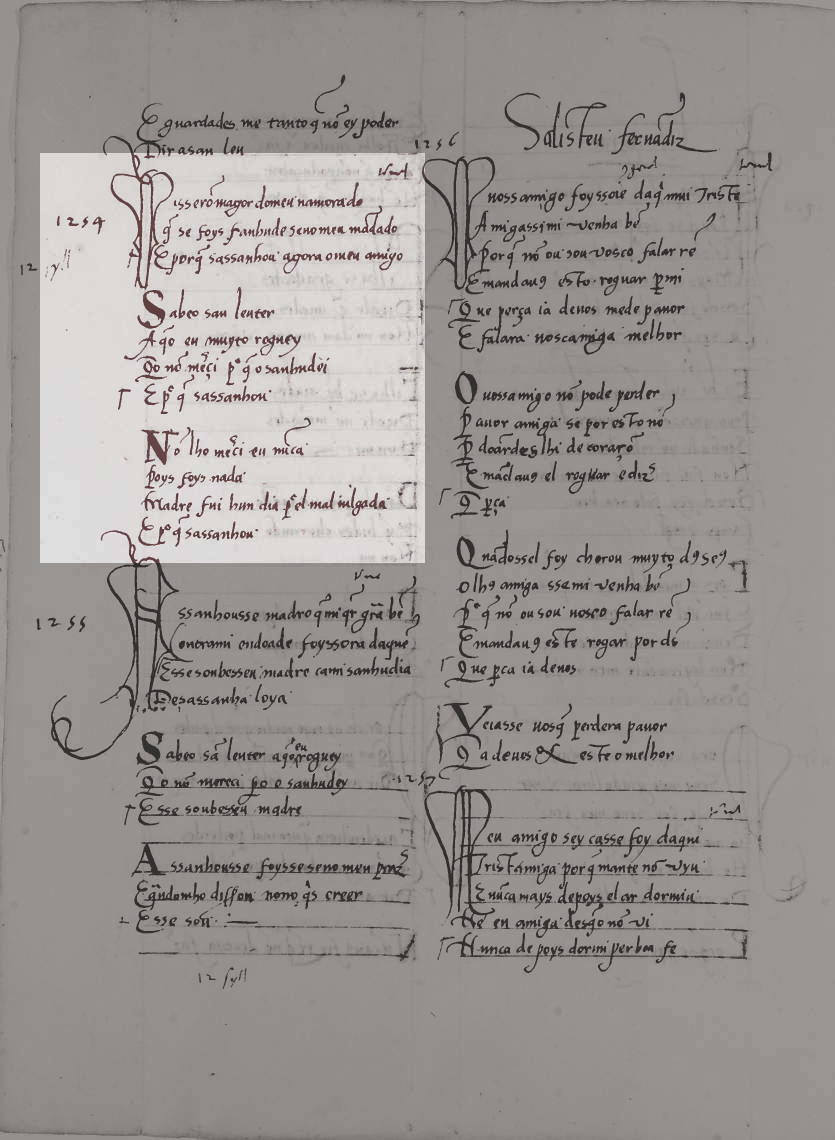 E guardades me tanto q̄ nō ey poder
Dir a san leu
1254
isserō magor domeu namorado
q̄ se foys sanhude senomeu mādado
E porq̄ sassanhou agora omeu amigo
12 syll
Sabeo san leuter
Aq̄o eu muyto roguey
Qo nō m̄eci pr q̄ o sanhudei
E pr q̄ sassanhou
Nō lho m̄eci eu mīca
Poys foys nada
Madre fui hun dia pr el mal iulgada
E pr q̄ sassanhou
1255
ssanhousse madro q̄ mi q̄r grā bē
Contrami endoade foyssora daquē
Esse soubesseu madre camisanhudia
Desassanha loya
Sabeo sā leuter aq̄o eu roguey
Qo nō mereci po o sanhudey
Esse soubesseu madre
Assanhousse foysse seno meu praz
E q̄ndomho diss̄on nono q̄s creer
Esse son
12 syll
1256
Solisteu fernādiz
uossamigo foyssoie daq̄ mui Triste
Amigassimi uenha bē
Porq̄ nō ousou uosco falar rē
E mandau9 esto roguar p̄mi
Que perça ia deuos mede pauor
E falara uoscamiga melhor
O uossamigo nō pode perder
Pauor amiga se por esto nō
P̄doardeslhi de coraçō
E mādau9 el roguar e diz
Q̄ p̄ça
Quādossel foy chorou muyto d9 se9
olh9 amiga ssemi uenha bē
Pr q̄ nō ousou uosco falar rē
E mandau9 este rogar por ds
Que p̄ca ia deuos
Veiasse uosq̄ perdera pauor
Q̄ a deuos & este o melhor
1257
eu amigo sey casse foy daqui
Tristamiga porq̄ mante nō uyu
E nūca mays depoys el ar dormiu
Nē eu amiga desq̄o nō ui
Nunca de poys dormi per boa fe